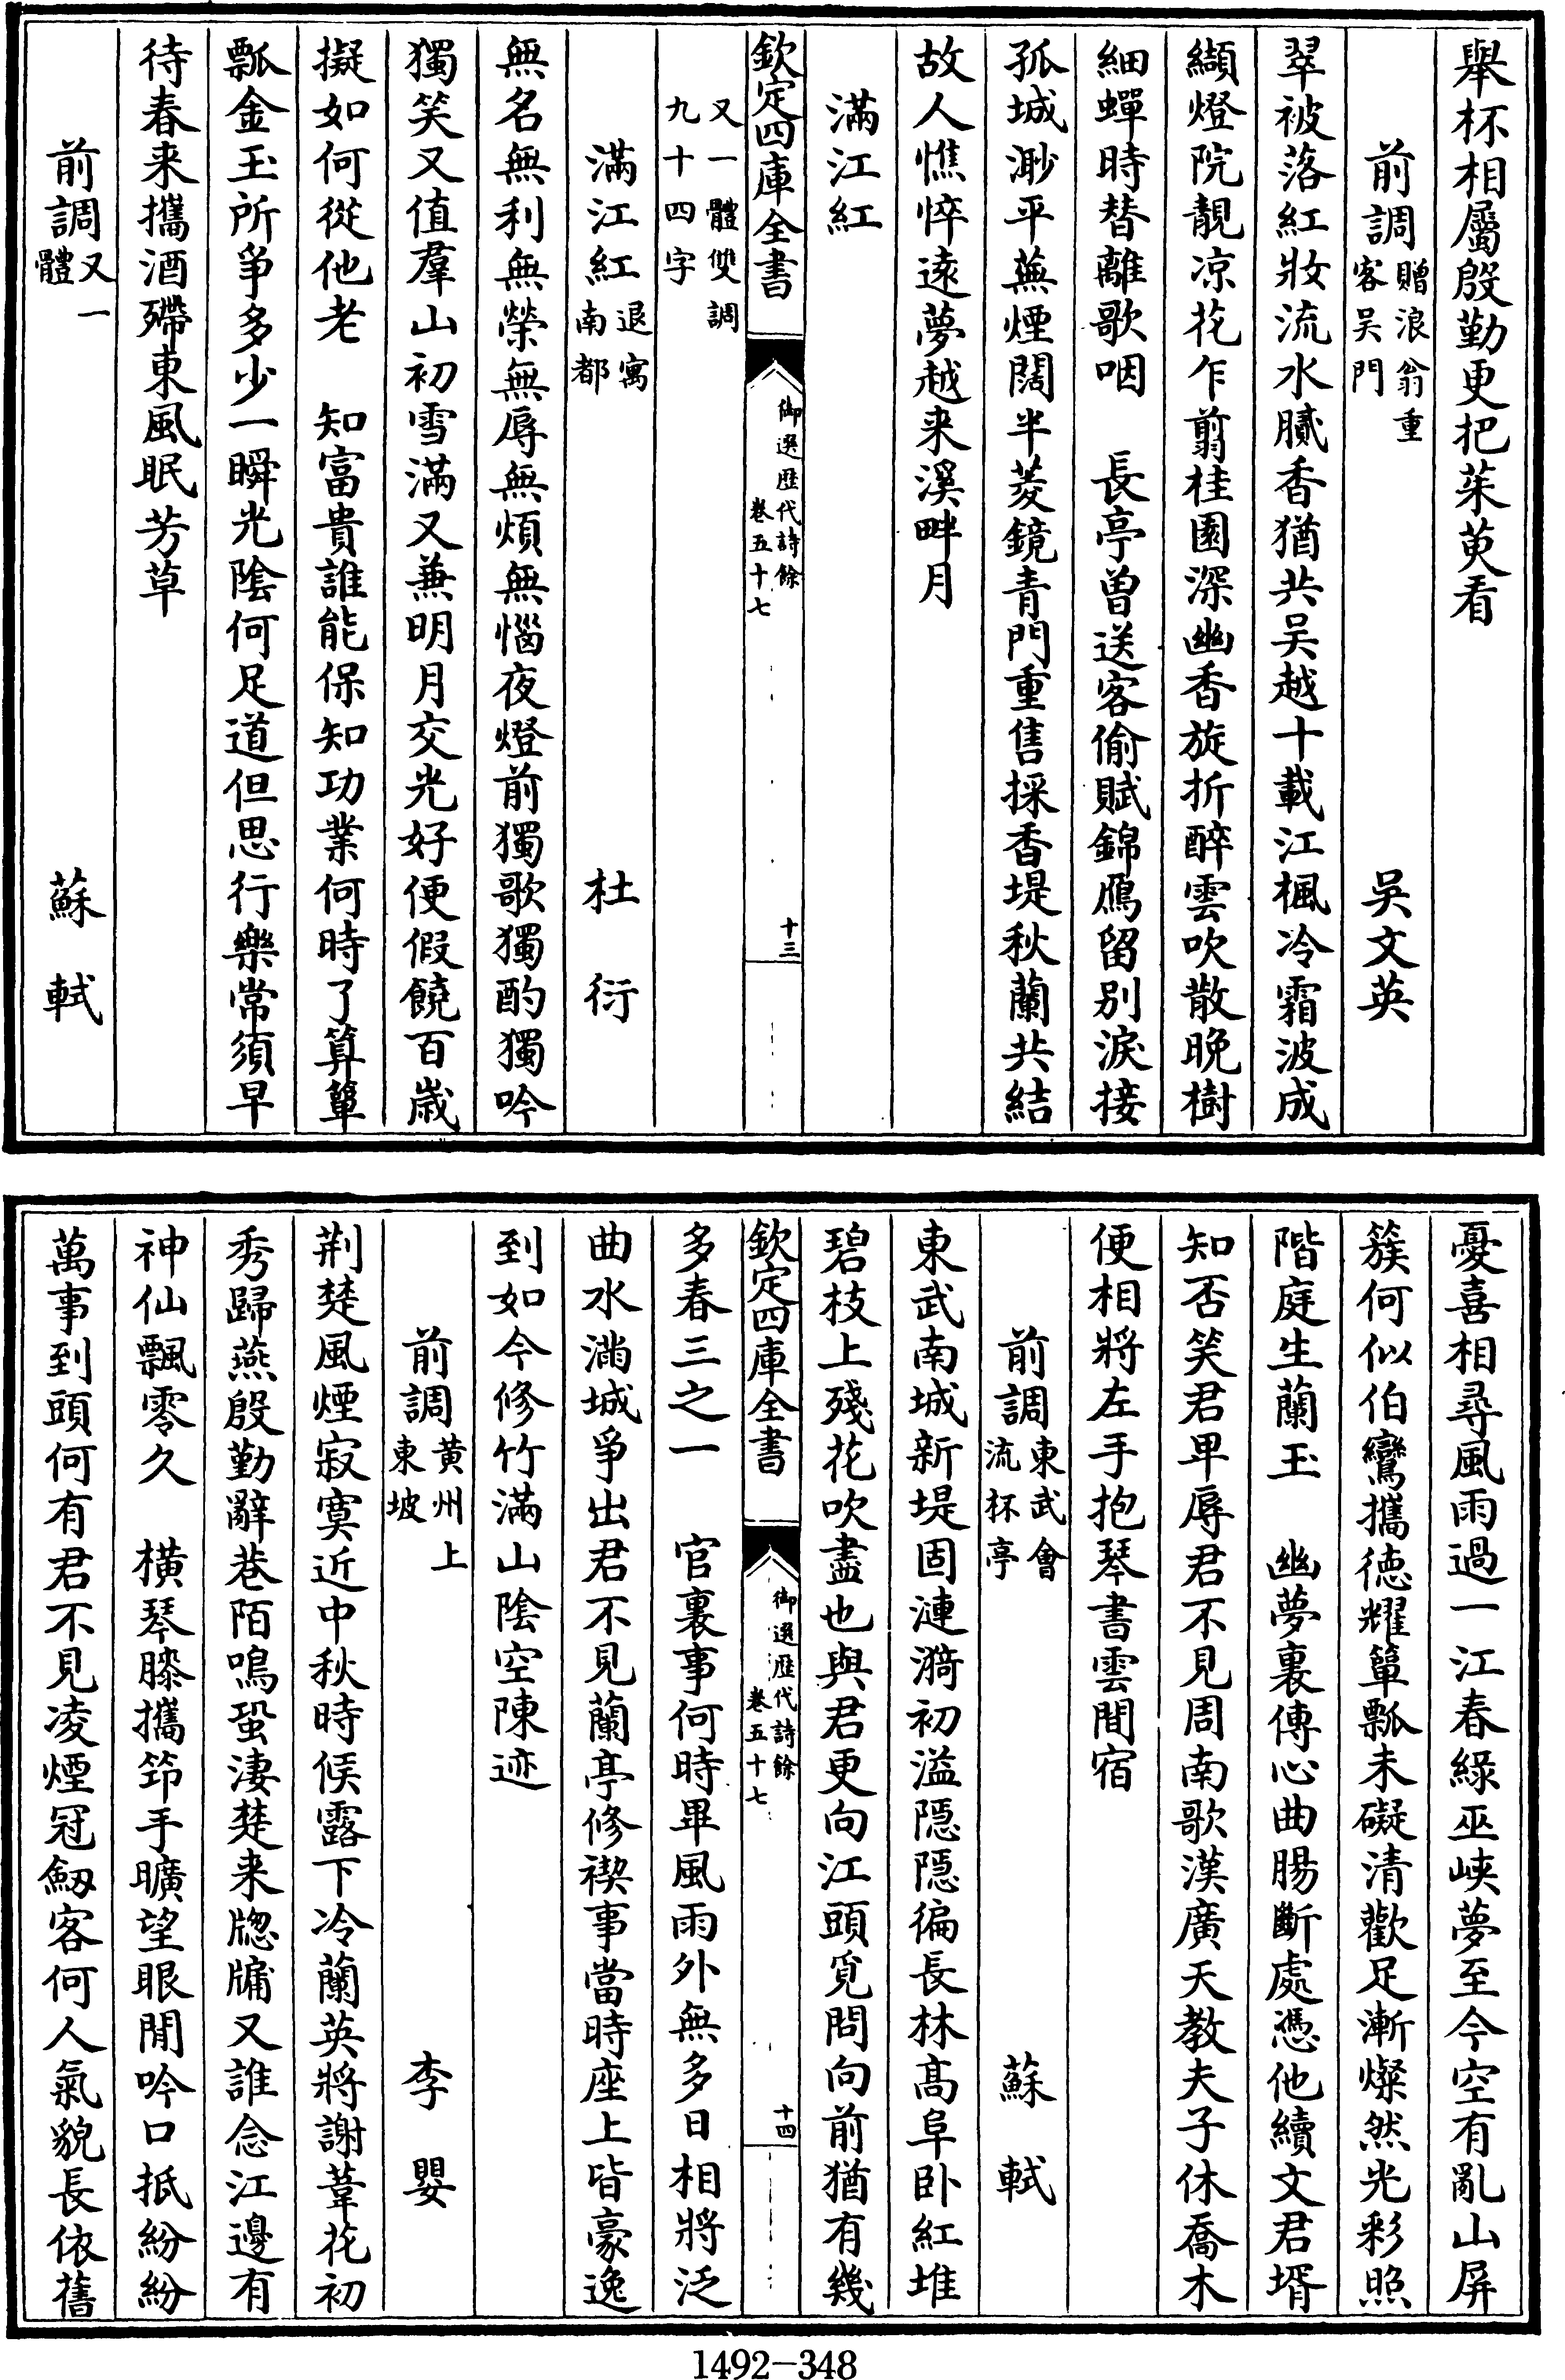 舉杯相屬殷勤更把茱萸看
前調贈浪翁重客吴門 吳文英
翠被落紅妝流水膩香猶共吴越十載江楓冷霜波成
纈燈院靚凉花乍翦桂園深幽香旋折醉雲吹散晚樹
細蟬時替離歌咽 長亭曽送客偷賦錦鴈留别淚接
孤城渺平蕪煙闊半菱鏡青門重售採香堤秋蘭共結
故人憔悴逺夢越来溪畔月
滿江紅
欽定四庫全書 御選歴代詩餘 卷五十七 十三
又一體雙調九十四字
滿江紅退寓南都 杜衍
無名無利無榮無辱無煩無惱夜燈前獨歌獨酌獨吟
獨笑又值羣山初雪滿又兼明月交光好便假饒百歳
擬如何從他老 知富貴誰能保知功業何時了算簞
瓢金玉所爭多少一瞬光隂何足道但思行樂常須早
待春来攜酒殢東風眠芳草
前調又一體 蘇軾
憂喜相尋風雨過一江春緑巫峽夢至今空有亂山屏
簇何似伯鸞攜徳耀簞瓢未礙清歡足漸燦然光彩照
階庭生蘭玉 幽夢裏傳心曲腸斷處憑他續文君壻
知否笑君卑辱君不見周南歌漢廣天教夫子休喬木
便相將左手抱琴書雲間宿
前調東武會流杯亭 蘇軾
東武南城新堤固漣漪初溢隠隠徧長林髙阜卧紅堆
碧枝上殘花吹盡也與君更向江頭覓問向前猶有幾
欽定四庫全書 御選歴代詩餘 卷五十七 十四
多春三之一 官裏事何時畢風雨外無多日相將泛
曲水滿城爭出君不見蘭亭修禊事當時座上皆豪逸
到如今修竹滿山隂空陳迹
前調黄州東坡上 李嬰
荆楚風煙寂寞近中秋時候露下冷蘭英將謝葦花初
秀歸燕殷勤辭巷陌鳴蛩淒楚来牕牖又誰念江邊有
神仙飄零久 横琴膝攜筇手曠望眼閒吟口抵紛紛
萬事到頭何有君不見凌煙冠劔客何人氣貌長依舊
1492-348